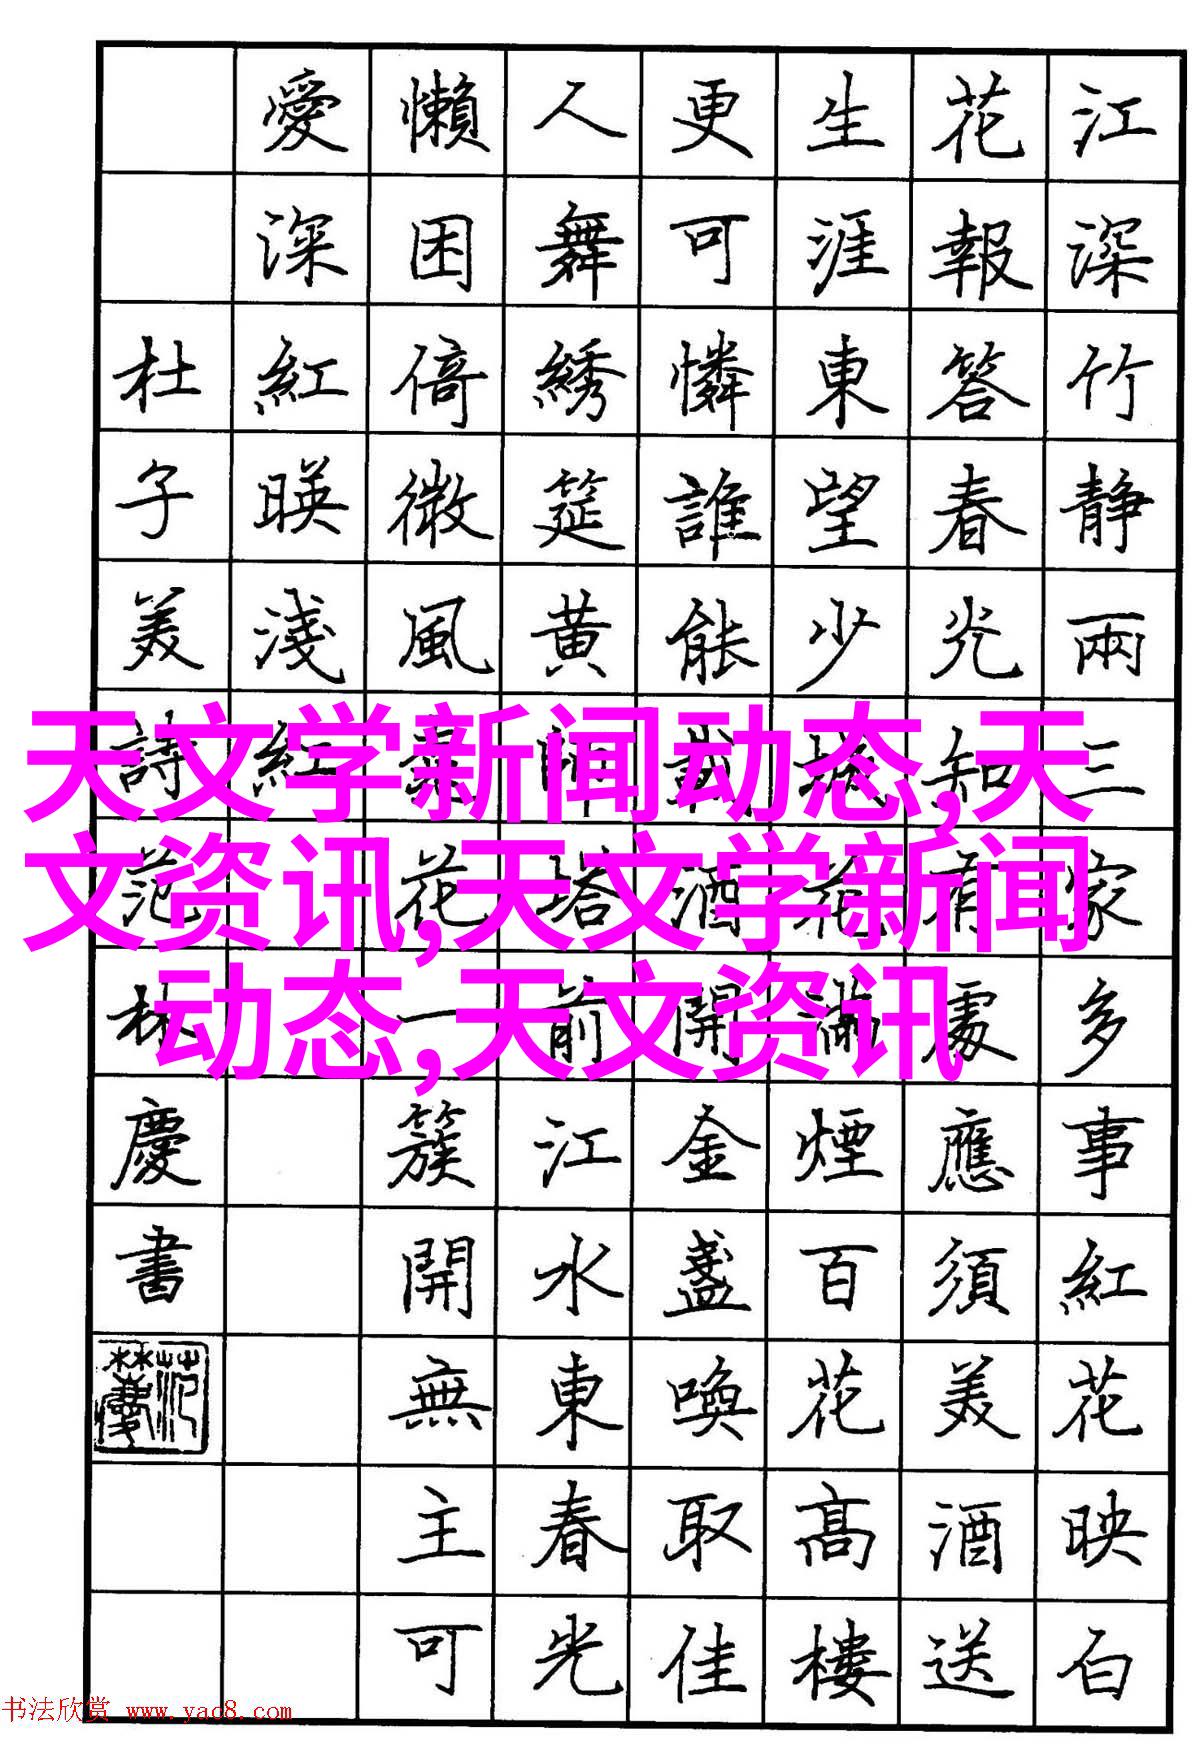 江深竹静兩三家多事紅花映白
花報答春光知有處應須美酒送
生涯東望少城花滿煙百花高樓
更可憐誰能載酒開金盞喚取佳
人舞綉筵黄師塔前江水東春光
懶困倚微風花一簇開無主可
愛深紅暎淺紅
杜子美詩范林慶書
天文学新闻动态,天
文资讯,天文学新闻
动态,天文资讯
书法欣赏 www.yac8.com